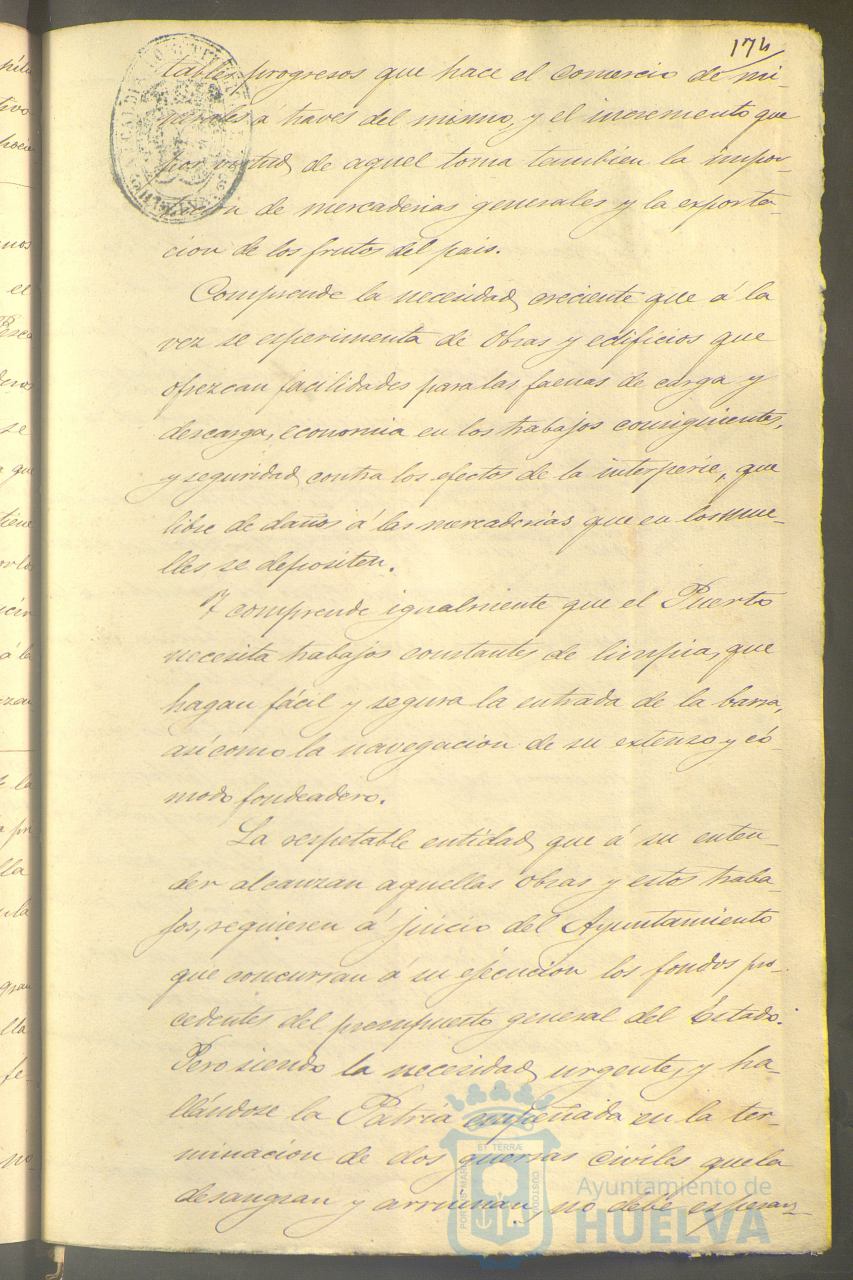 174
tables progresos que hace el comercio de mi-
nerales á traves del mismo, y el incremento que
por virtud de aquel toma tambien la impor-
tacion de mercaderias generales y la exporta-
cion de los frutos del pais.
Comprende la necesidad creciente que á la
vez se esperimenta de obras y edificios que
ofrezcan facilidades para las faenas de carga y
descarga, economia en los trabajos consiguientes,
y seguridad contra los efectos de la interperie, que
libre de daños á las mercaderias que en los mue-
lles se depositen.
Y comprende igualmente que el Puerto
necesita trabajos constantes de limpia, que
hagan fácil y segura la entrada de la barra,
asi como la navegacion de su extenso y có-
modo fondeadero.
La respetable entidad que á su enten-
der alcanzan aquellas obras y estos traba-
jos, requieren á juicio del Ayuntamiento
que concurran á su ejecucion los fondos pro-
cedentes del presupuesto general del Estado.
Pero siendo la necesidad urgente, y ha-
llándose la Patria empeñada en la ter-
minacion de dos guerras civiles que la
desangran y arruinan, no debe esperar-
PORTUS MARIS ET TERRAE CUSTODIA
Ayuntamiento de
HUELVA